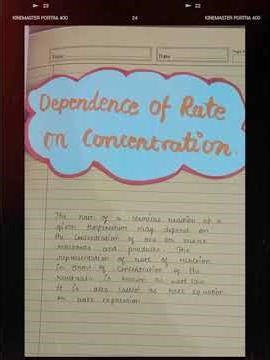 23 23
KINEMASTER PORTRA 400 24 KINEMASTER PORTRA 400
Date
Dependence of Rate
on Concentration
The rate of a chemical reaction at a
given temperature may depend on
the concentration of one or more
reactants and products. The
representation of rate of reaction
in terms of concentration of the
reactants is known as rate law.
It is also called as rate equation
or rate expression.
22 22
KINEMASTER PORTRA 400 KINEMASTER PORTRA 400